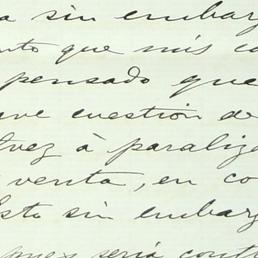 a sin embarg
nto que mis co
pensado que
eve cuestión de
lvez à paraliza
venta, en co
Esta sin embarg
pues sería contr